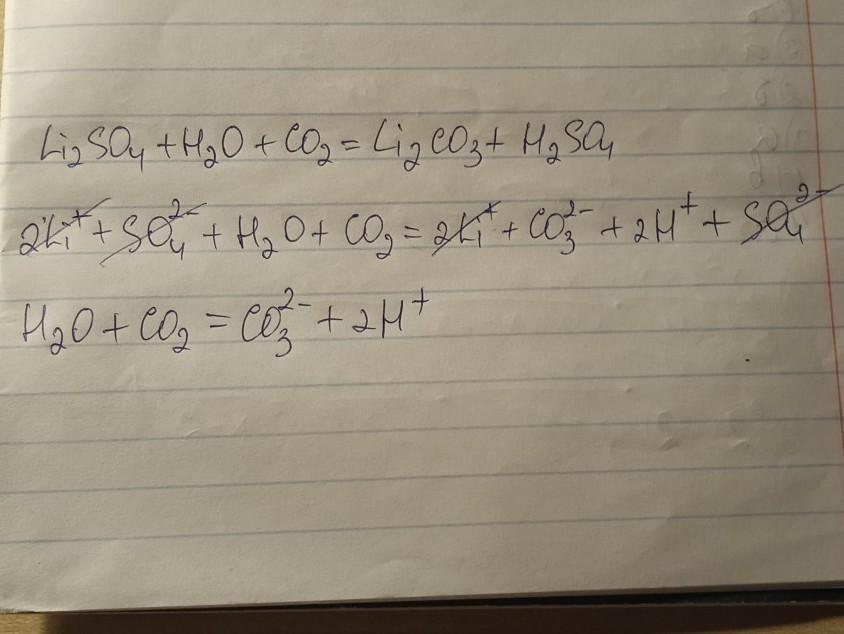 Li₂SO₄ + H₂O + CO₂ = Li₂CO₃ + H₂SO₄
2Li⁺ + SO₄²⁻ + H₂O + CO₂ = 2Li⁺ + CO₃²⁻ + 2H⁺ + SO₄²⁻
H₂O + CO₂ = CO₃²⁻ + 2H⁺